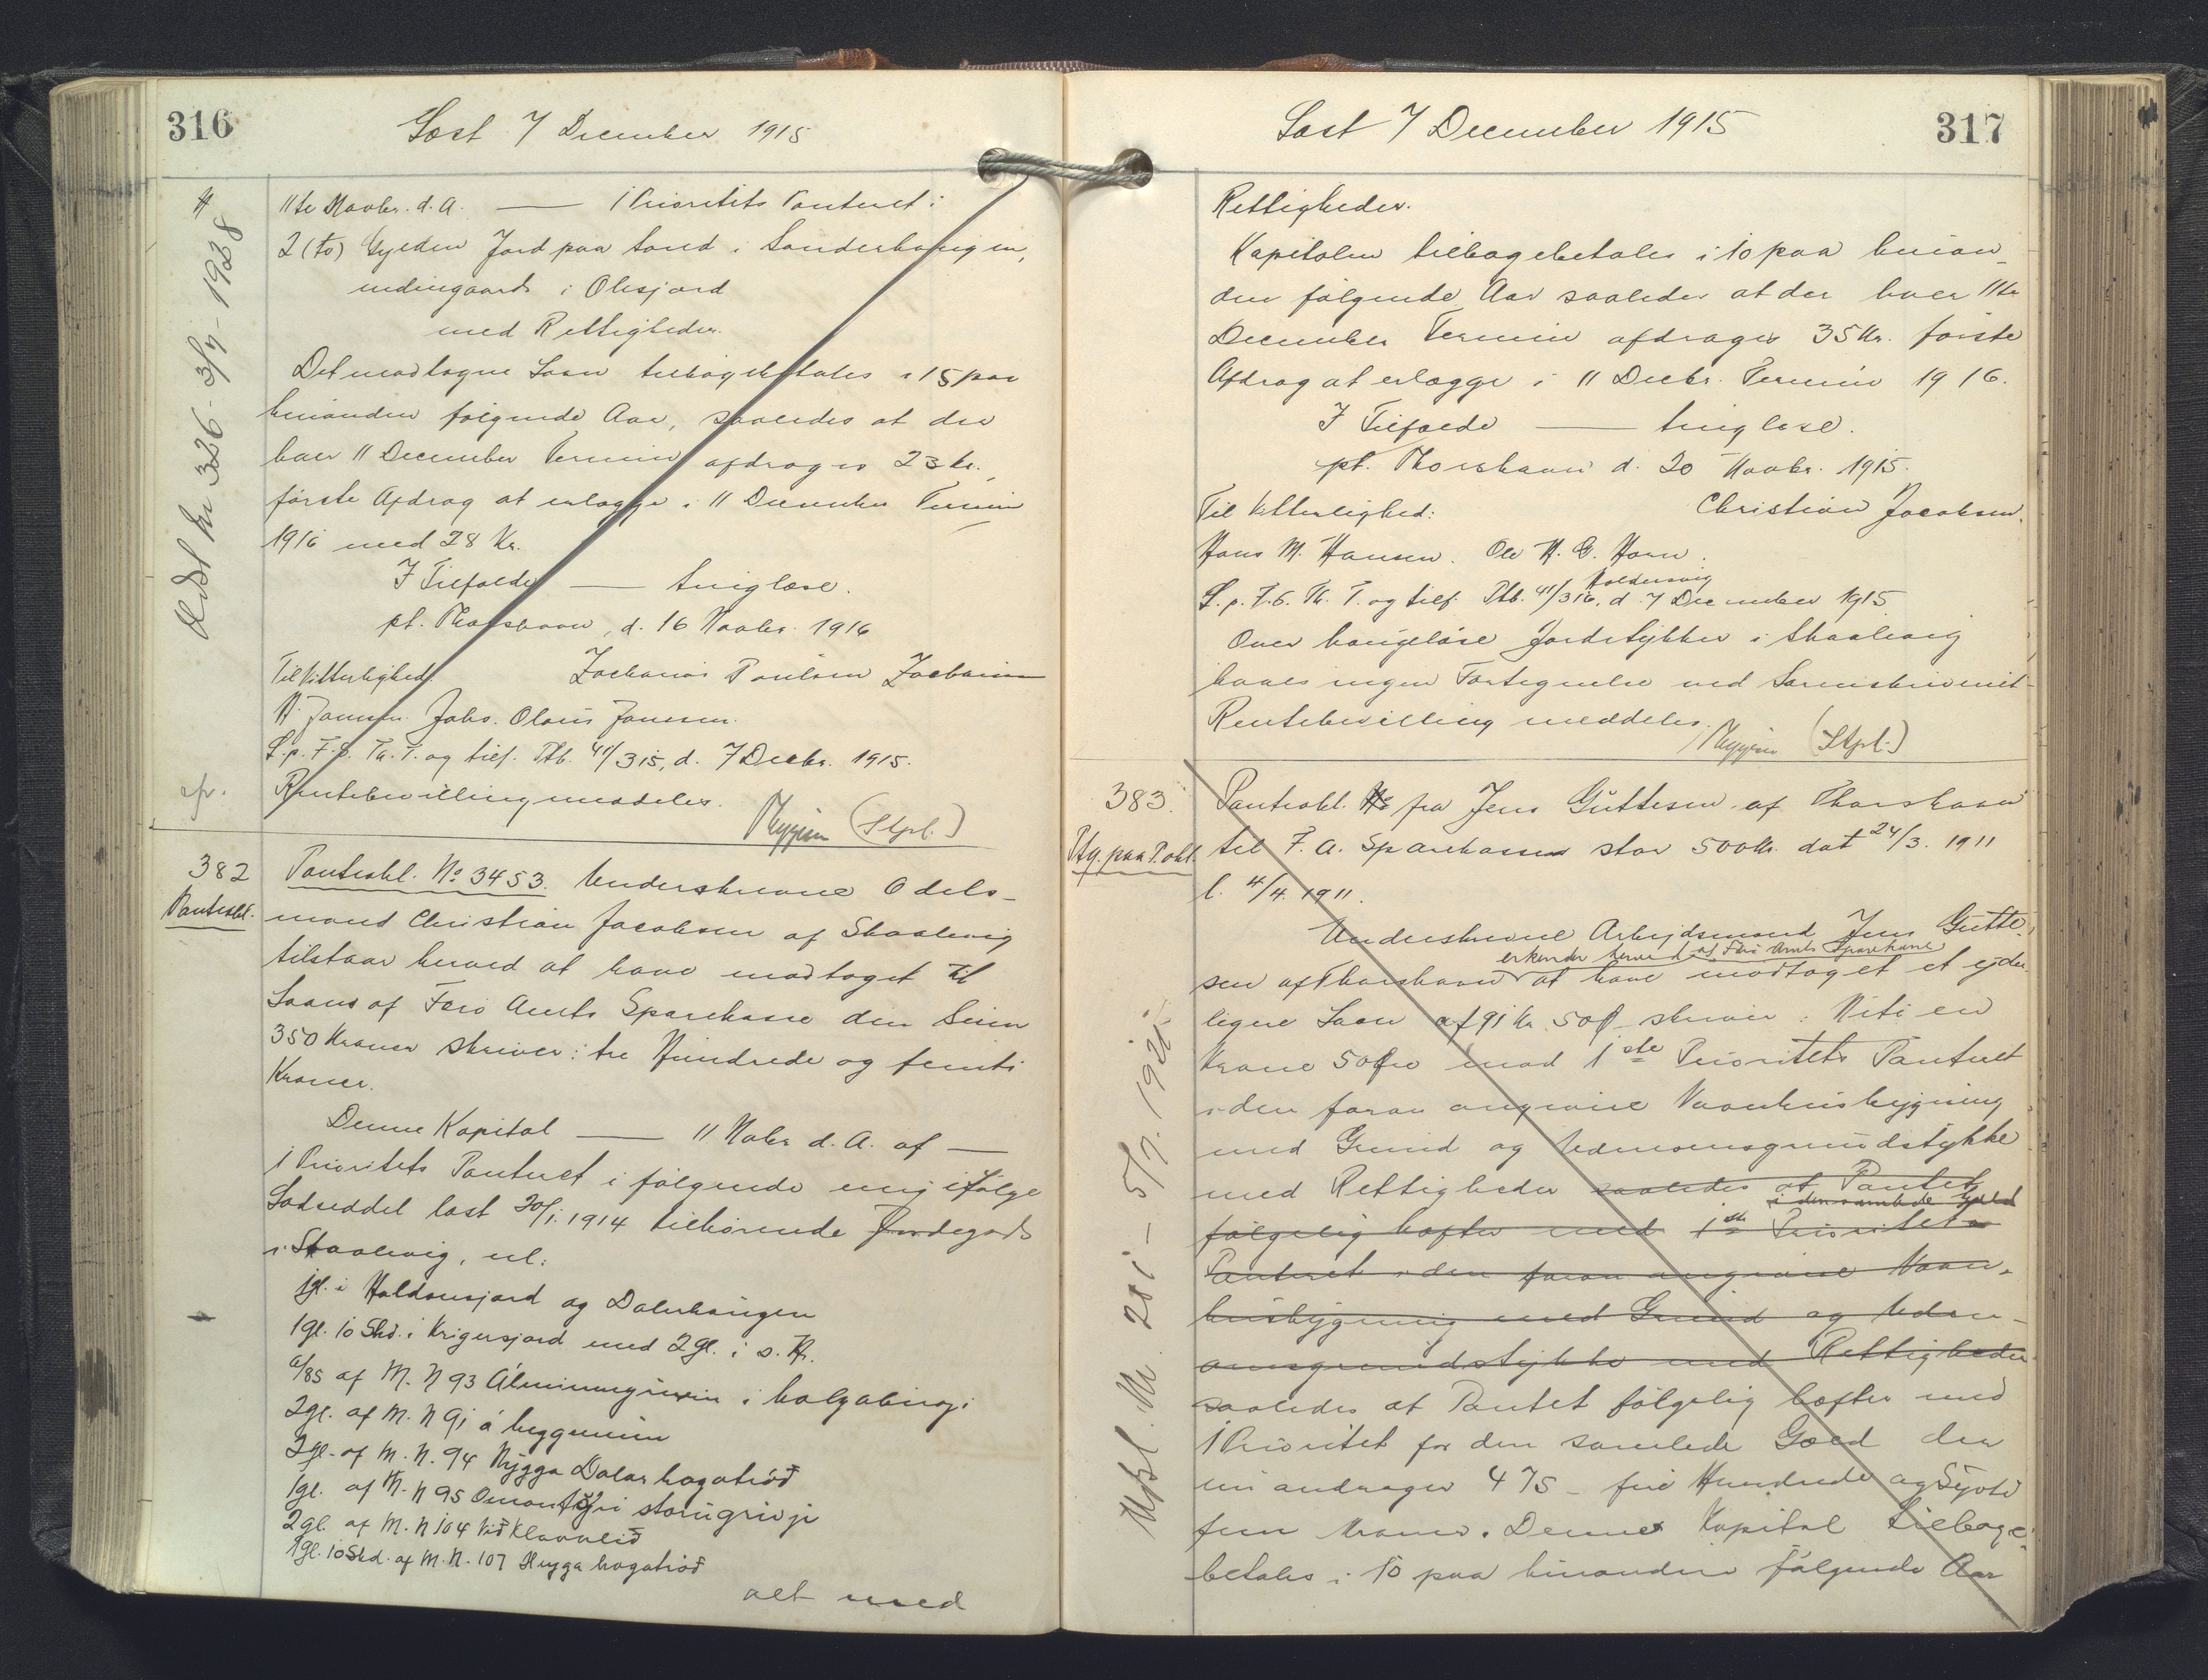 316
Læst 7 December 1915
11te Novbr. d. A. — 1 Prioritets Panteret i
2 (to) Gylden Jord paa Sand i Sanderhaugin,
indingaards i Olisjord
med Rettigheder.
Det modtagne Laan tilbagebetales i 15 paa
hinanden følgende Aar, saaledes at der
hver 11 December Termin afdrages 23 Kr.,
første Afdrag at erlægge i 11 December Termin
1916 med 28 Kr.
I Tilfælde — tinglæse.
pt. Thorshavn, d. 16 Novbr. 1916
Til Vitterlighed: Zacharias Poulsen Zachariasen
H. Jensen. Johs. Olaus Jensen.
L. p. F. S. Th. T. og tilf. Ptb. 41/315, d. 7 Decbr. 1915.
Rentebevilling meddeles.
(Stpl.)
Udsl. Nr 326 - 3/7 - 1928
382
Panteobl.
Panteobl. No 3453. Underskrevne Odels-
mand Christian Jacobsen af Skaalevig
tilstaar herved at have modtaget til
Laans af Færø Amts Sparekasse den Sum
350 Kroner skriver: tre Hundrede og femti
Kroner.
Denne Kapital — 11 Nobr d. A. af —
1 Prioritets Panteret i følgende mig ifølge
Lodseddel læst 20/1. 1914 tilhørende Jordegods
i Skaalevig, nl:
1gl. i Haldansjord og Dalerhaugen
1gl. 10 Skd. i Krigersjord med 2 gl. i s. H.
6/85 af M. N 93 Álmenningurin i halgabirgi
2gl. af M. N 91 á heggunum
2gl. af M. N. 94 Nýgga Dalar hagatröð
1gl. af M. N 95 Oman fyri storugrivji
2gl. af M. N 104 Við Klavaleið
1gl. 10 Skd. af M. N. 107 Nygga hagatröð
alt med
317
Læst 7 December 1915
Rettigheder.
Kapitalen tilbagebetales i 10 paa hinan-
den følgende Aar saaledes at der hver 11te
December Termin afdrages 35 Kr. første
Afdrag at erlægge i 11 Decbr. Termin 1916.
I Tilfælde — tinglæse.
pt. Thorshavn d. 20 Novbr. 1915.
Til Vitterlighed: Christian Jacobsen.
Hans M. Hansen. Ole H. G. Haan.
Haldersvig
L. p. F. S. Th. T. og tilf. Ptb. 41/316, d. 7 December 1915
Over haugeløse Jordstykker i Skaalevig
haves ingen Fortegnelse ved Sorenskriveriet
Rentebevilling meddeles.
(Stpl.)
383.
Ptg. paa P.obl.
Panteobl. fra Jens Guttesen af Thorshavn
til F. A. Sparekasse stor 500 Kr. dat 24/3. 1911
l. 4/4. 1911.
Underskrevne Arbejdsmand Jens Gutte-
erkender herved af Færø Amts Sparekasse
sen af Thorshavn at have modtaget et yder-
ligere Laan af 91 Kr. 50 Ø skriver: Niti en
Krone 50 Øre mod 1ste Prioritets Panteret
i den foran angivne Vaanhusbygning
med Grund og Udenomsgrundstykke
med Rettigheder saaledes at Pantet
i den samlede Gæld
følgelig hæfter med 1ste Prioritets
Panteret i den foran angivne Vaan-
husbygning med Grund og Uden-
omsgrundstykke med Rettigheder
saaledes at Pantet følgelig hæfter med
1 Prioritet for den samlede Gæld der
nu andrager 475 - fire Hundrede og Syvti
fem Kroner. Denne Kapital tilbage-
betales i 10 paa hinanden følgende Aar
Udsl. Nr. 201 - 5/7. 1921.